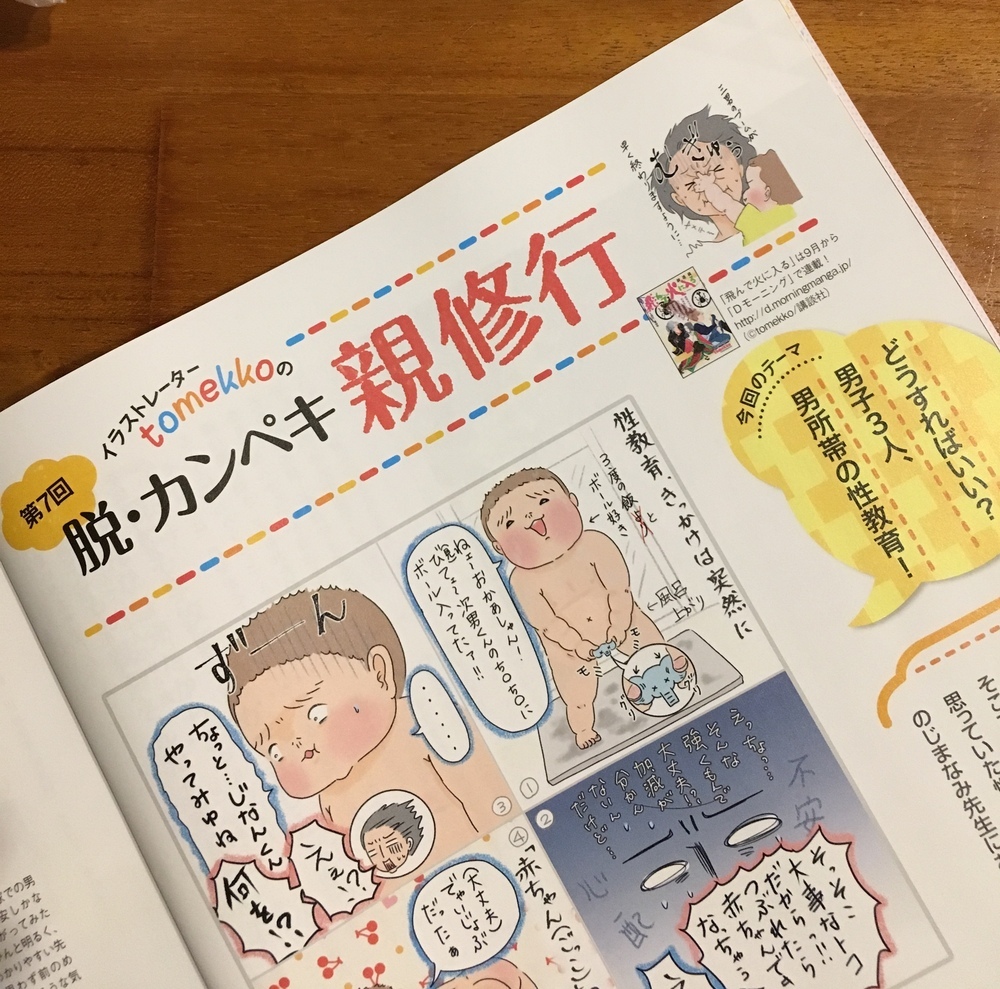 三男のブームが
早く終わりますように…
むぎゅう
「飛んで火に入る」は9月から
「Dモーニング」で連載！
http://d.morningmanga.jp/
(©tomekko/講談社)
イラストレーター
tomekkoの
第7回
脱・カンペキ
親修行
今回のテーマ
どうすればいい？
男子3人、
男所帯の性教育！
性教育、きっかけは突然に
3度の飯と
ボール好き
←風呂
上がり
モミ
モミ
グリ
グリ
ねェーおかあしゃん！
見てェ〜次男くんのち○ち○に
ボール入ってたァ!!
①
②
えっちょ…
そんな
強くもんで
大丈夫!?
加減が
分かん
ないん
だけど…
不安
心配
そっそこ
大事なトコ
だから!!
つぶれたら
赤ちゃんで
な、ちゃう
・・・・
③
ずーん
ちょっと…じなんくん
やってみゆね
何を!?
えぇ!?
④
(大丈夫)
でゃいじょぶ
だったぁ
赤ちゃんごっこ
思っていた
のじまなみ先生に
までの男
安しかな
がってみた
んと明るく、
かりやすい先
思わず前のめ
うな気